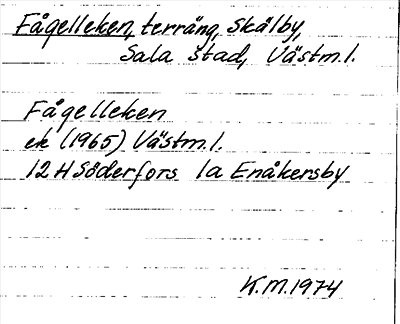 Fågelleken, terräng, Skälby,
Sala stad, Västm.l.
Fågelleken
ek (1965) Västm.l.
12 H Söderfors 1a Enåkersby
K.M. 1974